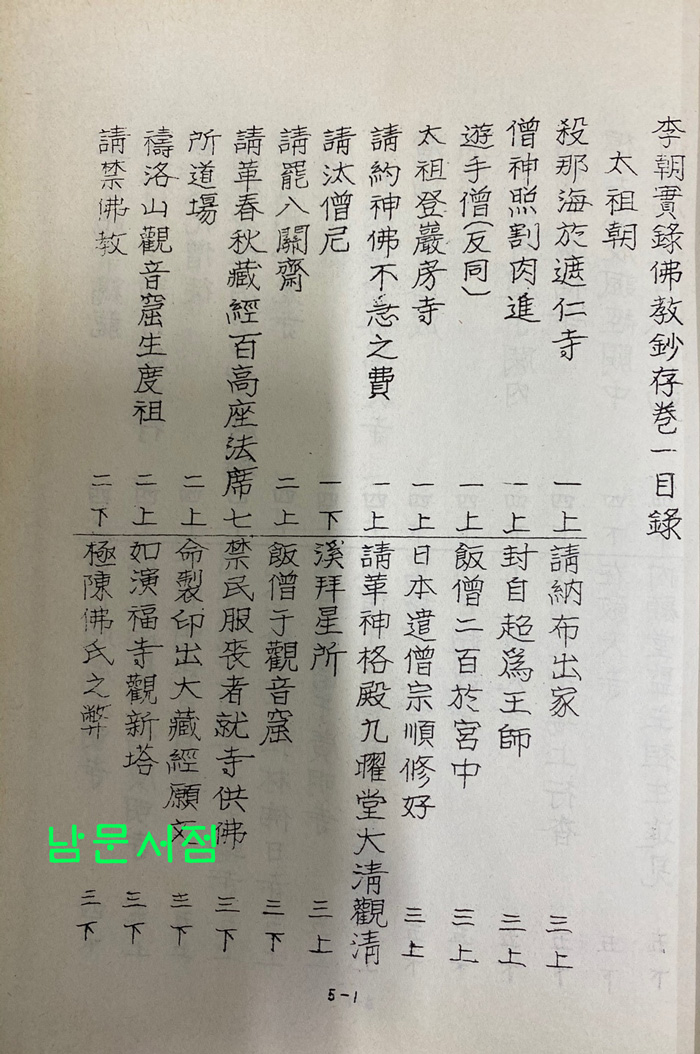 李朝實錄佛教鈔存卷一目錄
太祖朝
殺那海於遮仁寺 一上
僧神照割肉進 一上
遊手僧(反同) 一上
太祖登巖房寺 一上
請約神佛不急之費 一上
請汰僧尼 一下
請罷八關齋 二上
請革春秋藏經百高座法席七
所道場 二上
禱洛山觀音窟生度祖 二上
請禁佛教 二下
請納布出家 三上
封自超爲王師 三上
飯僧二百於宮中 三上
日本遣僧宗順修好 三上
請革神格殿九曜堂大淸觀淸
溪拜星所 三上
飯僧于觀音窟 三下
禁民服喪者就寺供佛 三下
命製印出大藏經願文 三下
如演福寺觀新塔 三下
極陳佛氏之弊 三下
남문서점
5-1